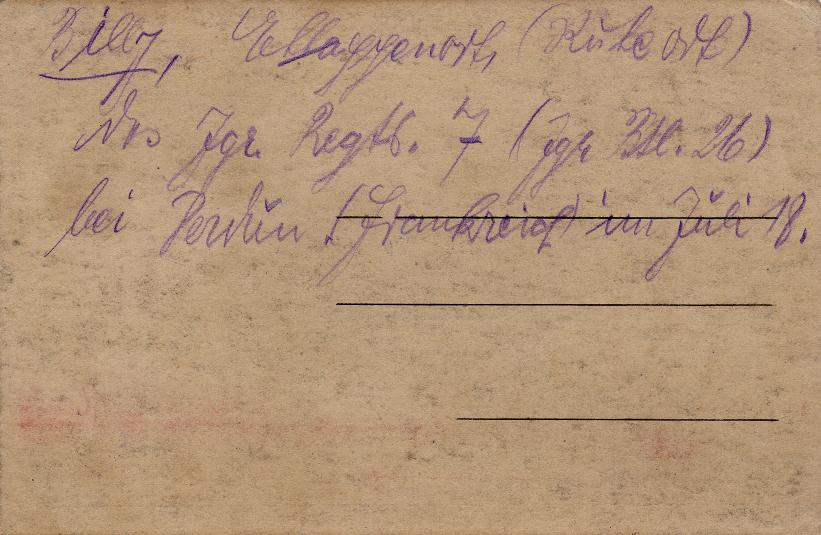 Billy, Etappenort, (Ruheort)
des Jgr. Regts. 7 (Jgr. Btl. 26)
bei Verdun (Frankreich) im Juli 18.